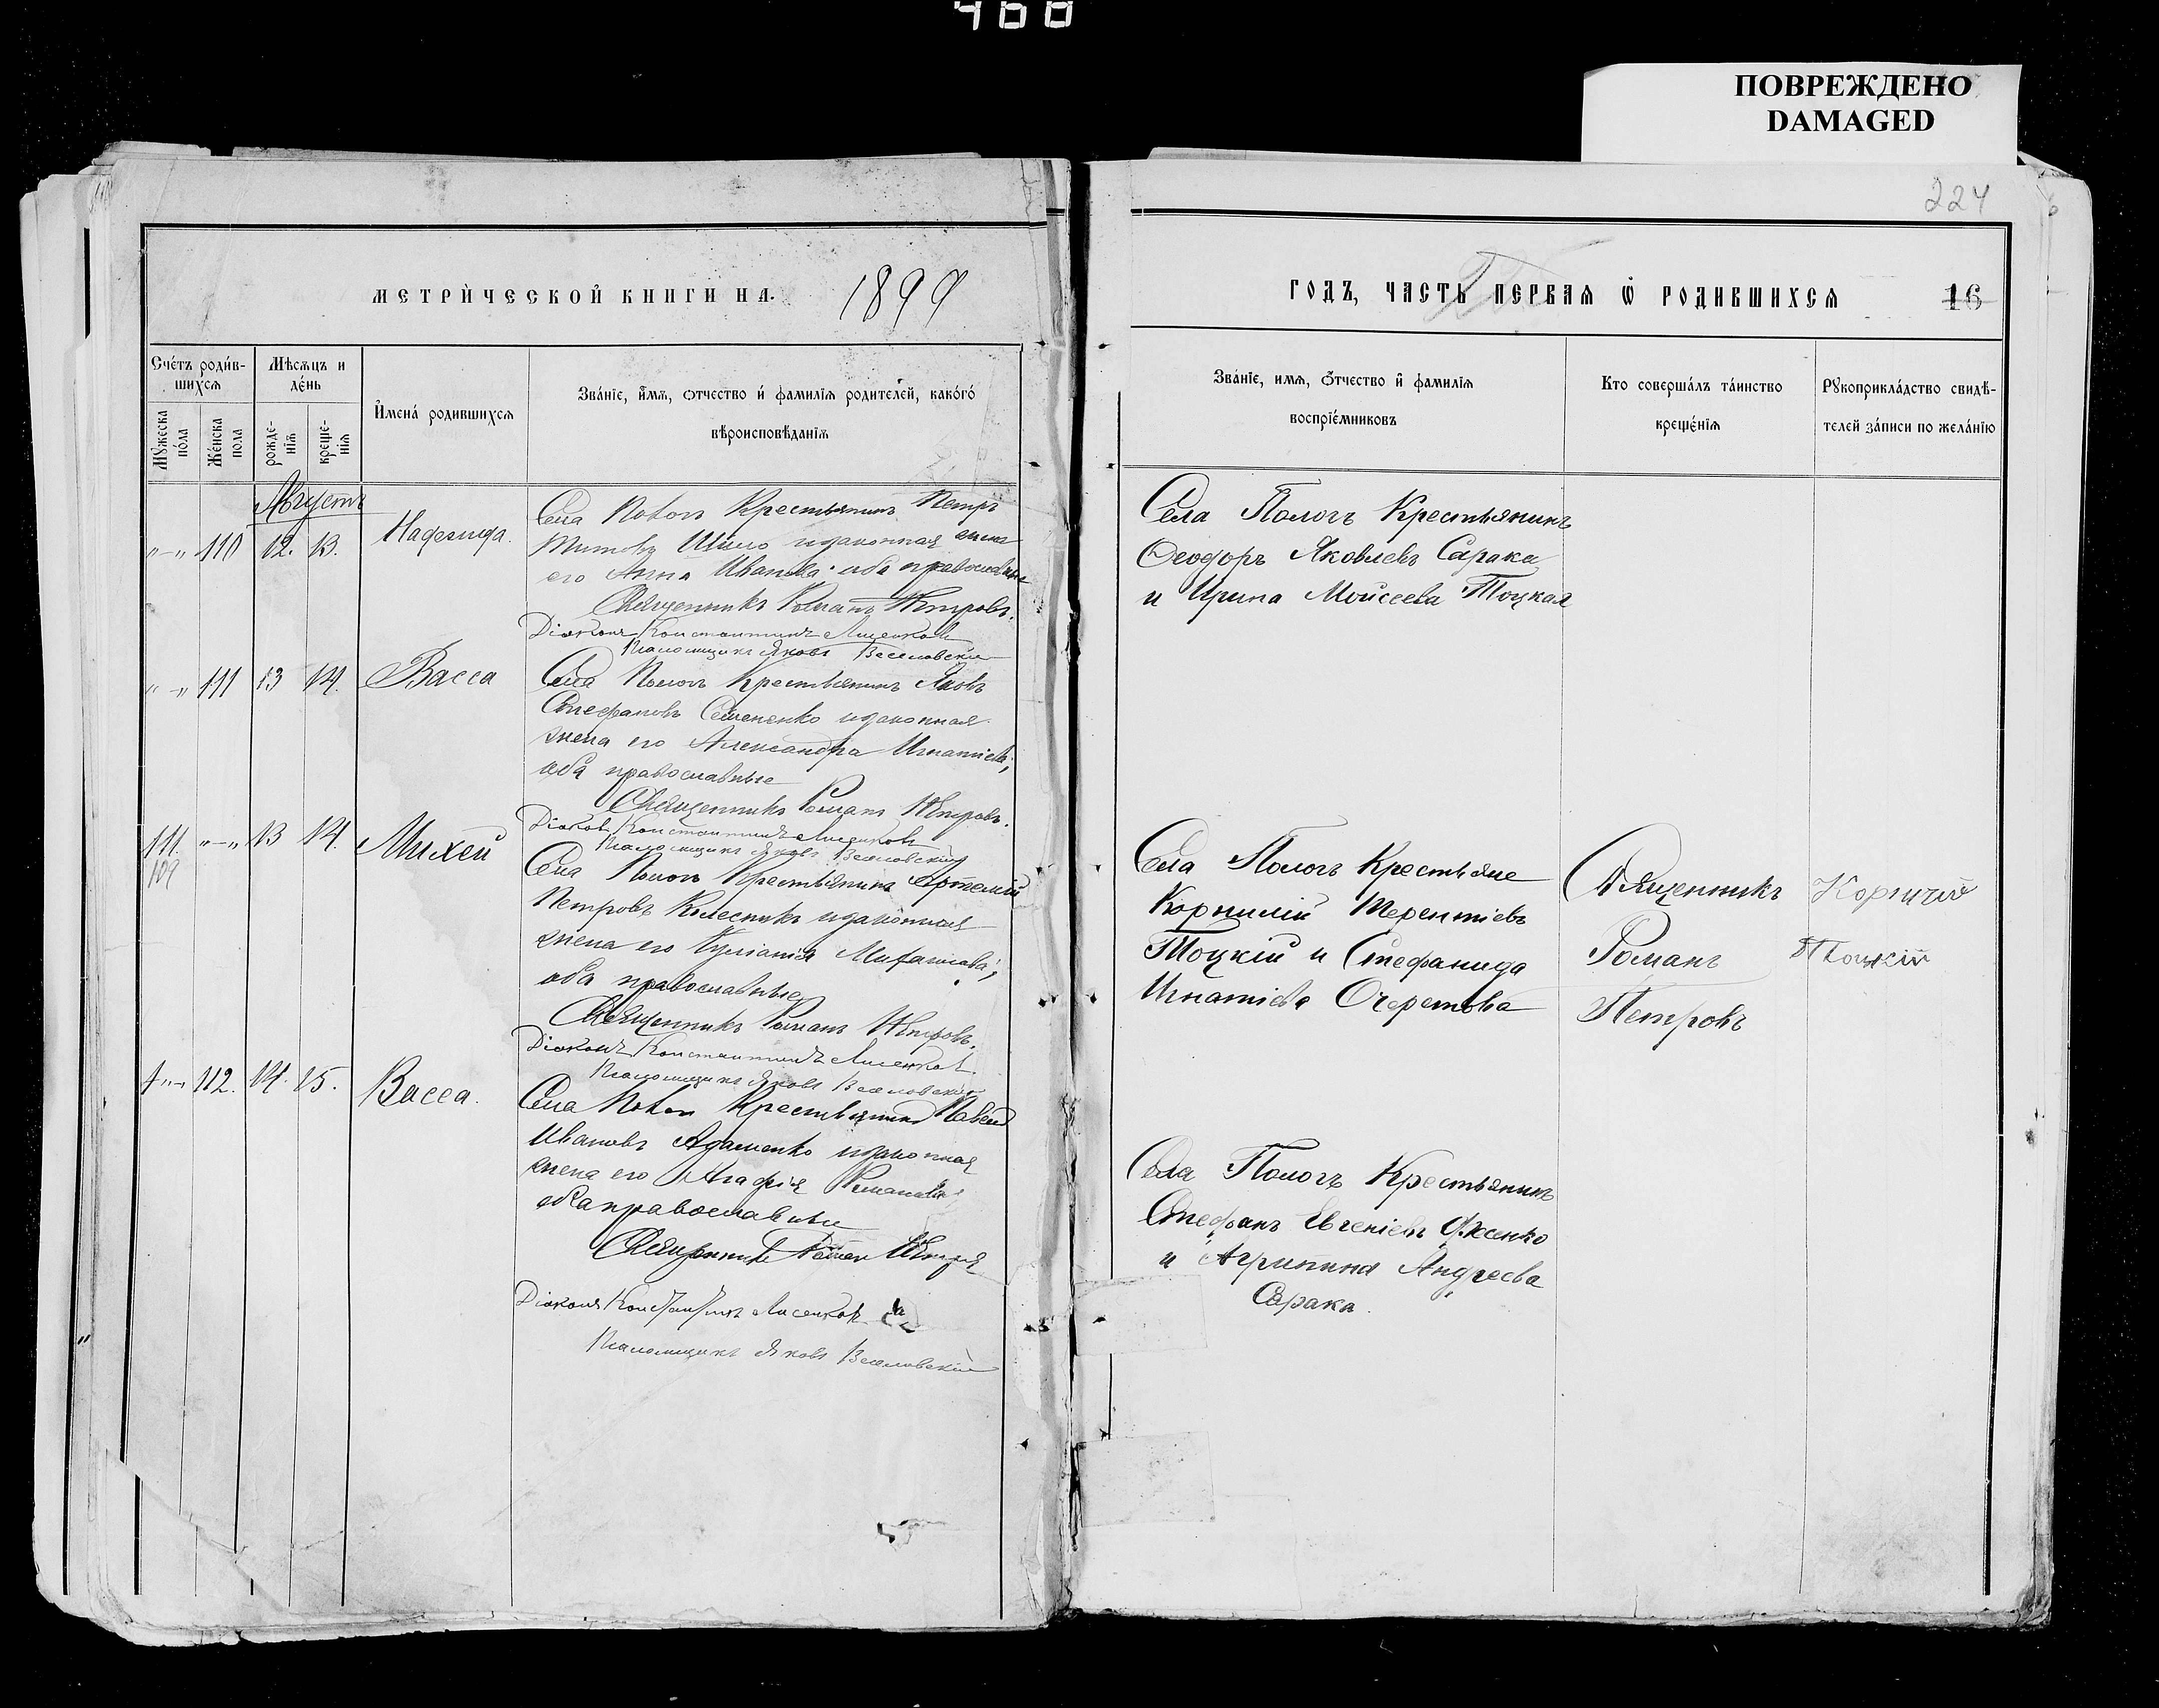 400
ПОВРЕЖДЕНО
DAMAGED
224
МЕТРИЧЕСКОЙ КНИГИ НА 1899
ГОДЪ, ЧАСТЬ ПЕРВАЯ Ѿ РОДИВШИХСЯ
16
Счетъ родившихся
Мужеска пола
Женска пола
Мѣсяцъ и день
рожденія
крещенія
Имена родившихся
Званіе, имя, отчество и фамилія родителей, какого
вѣроисповѣданія
Званіе, имя, отчество и фамилія
воспріемниковъ
Кто совершалъ таинство
крещенія
Рукоприкладство свидѣ-
телей записи по желанію
Августъ
"—" 110 12. 13. Надежда.
Села Пологъ Крестьянинъ Петръ
Титовъ и законная жена
его Анна Иванова оба православные
Священникъ Романъ Петровъ.
Діаконъ Константинъ Лисенковъ
Псаломщикъ Яковъ Веселовскій
Села Пологъ Крестьянинъ
Ѳеодоръ Яковлевъ Сарака
и Ирина Моисеева Тоцкая
"—" 111 13 14. Васса
Села Пологъ Крестьянинъ Яковъ
Стефановъ Семененко и законная
жена его Александра Игнатіева,
оба православные
Священникъ Романъ Петровъ.
Діаконъ Константинъ Лисенковъ
Псаломщикъ Яковъ Веселовскій
111. "—" 13 14. Михей
109
Села Пологъ Крестьянинъ Артемій
Петровъ Колесникъ и законная
жена его Іуліанія Михаилова,
оба православные
Священникъ Романъ Петровъ.
Діаконъ Константинъ Лисенковъ.
Псаломщикъ Яковъ Веселовскій
Села Пологъ Крестьяне
Корнилій Терентіевъ
Тоцкій и Стефанида
Игнатіева Очеретова
Священникъ
Романъ
Петровъ
Тоцкій
"—" 112. 14. 15. Васса.
Села Пологъ Крестьянинъ Павелъ
Ивановъ Адаменко и законная
жена его Агафія Романова
оба православные
Священникъ Романъ Петровъ
Діаконъ Константинъ Лисенковъ
Псаломщикъ Яковъ Веселовскій
Села Пологъ Крестьянинъ
Стефанъ Евгеніевъ
и Агрипина Андреева
Сарака.